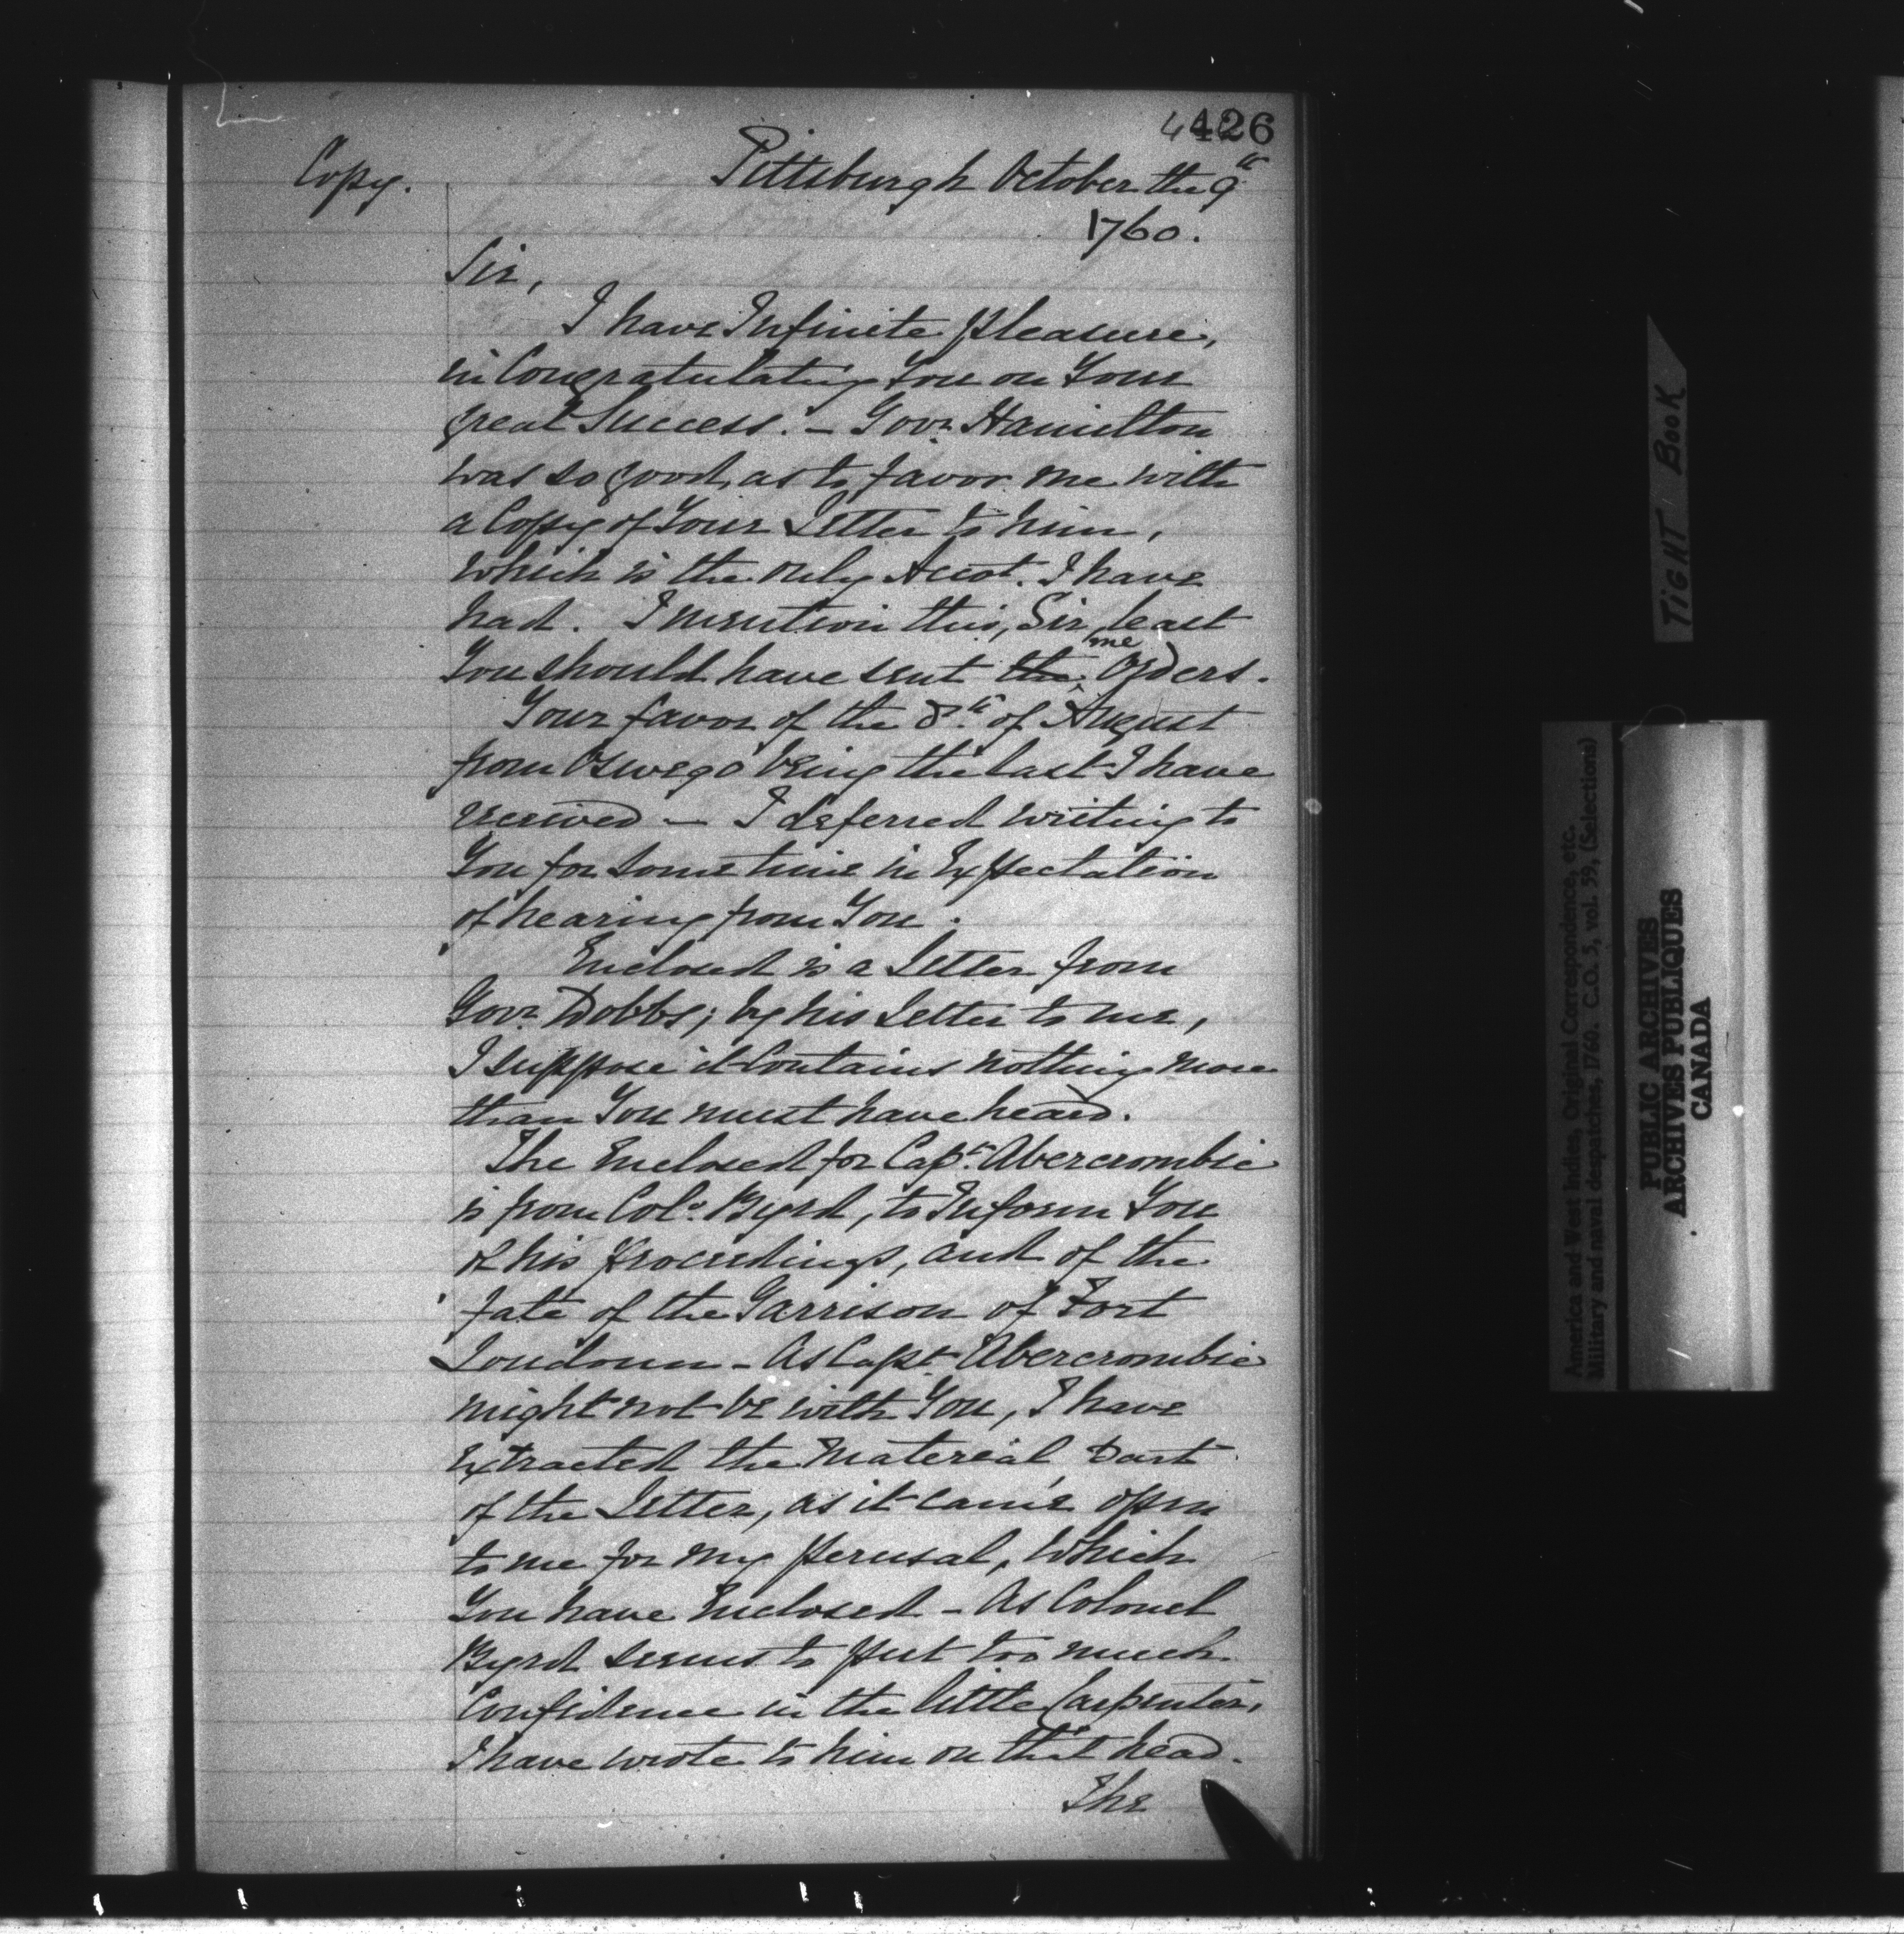 426
Copy.
Pittsburgh October the 9th
1760.
Sir,
I have Infinite pleasure,
in Congratulating You on Your
great Success. – Govr. Hamilton
was so good, as to favor me with
a Copy of Your Letter to him,
which is the only Accot. I have
had. I mention this, Sir, least
You should have sent the me Orders.
Your favor of the 8th. of August
from Oswego being the last I have
received — I deferred writing to
You for some time in Expectation
of hearing from You.
Enclosed is a Letter from
Govr. Dobbs; by his Letter to me,
I suppose it Contains nothing more
than You must have heard.
The Enclosed for Capt. Abercrombie
is from Colo. Byrd, to Inform You
of his proceedings, and of the
fate of the Garrison of Fort
Loudoun – As Capt Abercrombie
might not be with You, I have
Extracted the Material part
of the Letter, as it came open
to me for my perusal, which
You have Enclosed – As Colonel
Byrd seems to put too much
Confidence in the little Carpenter,
I have wrote to him on that head.
The
TIGHT BOOK
America and West Indies, Original Correspondence, etc.
Military and naval despatches, 1760. C.O. 5, vol. 59, (Selections)
PUBLIC ARCHIVES
ARCHIVES PUBLIQUES
CANADA